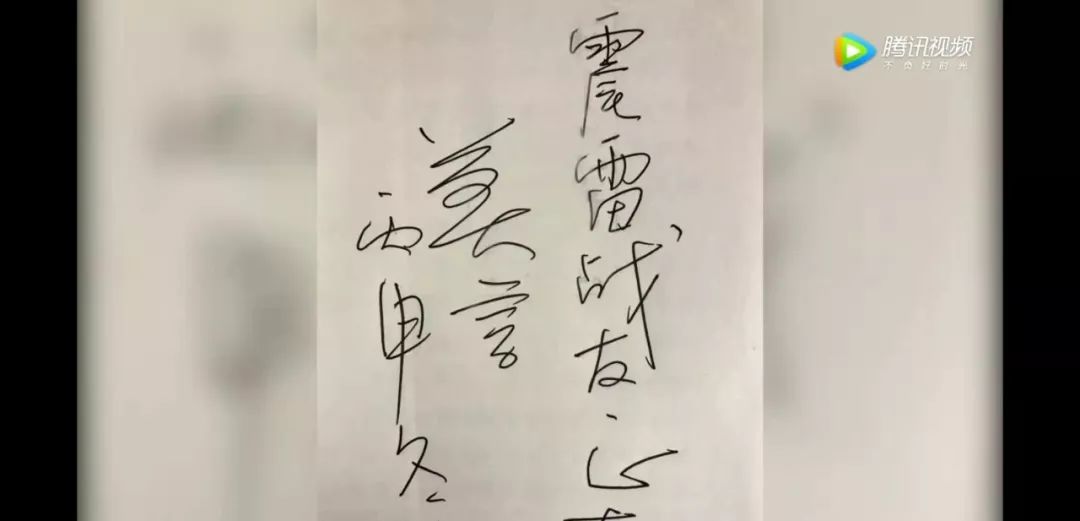 震雷战友
莫言
丙申冬
腾讯视频
不负好时光